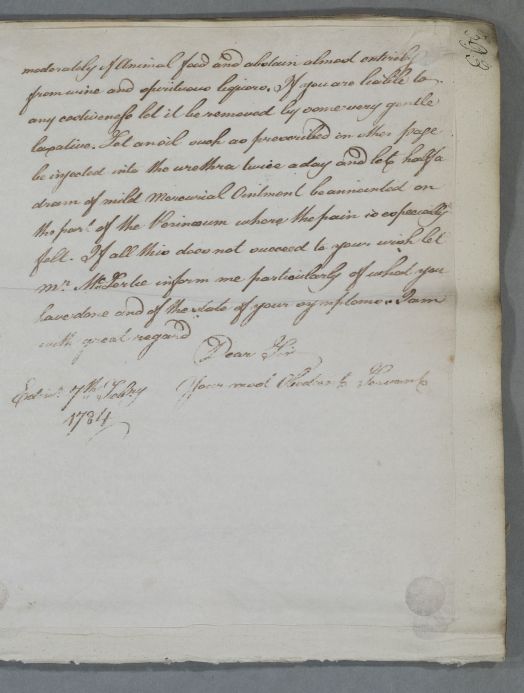 393
moderately of Animal food and abstain almost entirely
from wine and spirituous liquors. If you are liable to
any costiveness let it be removed by some very gentle
laxative. Let an oil such as prescribed in other page
be injected into the urethra twice a day and let half a
dram of mild Mercurial Ointment be annointed on
the part of the Perinæum where the pain is especially
felt. If all this does not succeed to your wish let
Mr. inform me particularly of what you
have done and of the state of your symptoms. I am
with great regard
Dear Sir
Your most Obedient Servant
Edinr. 7th Febry
1784